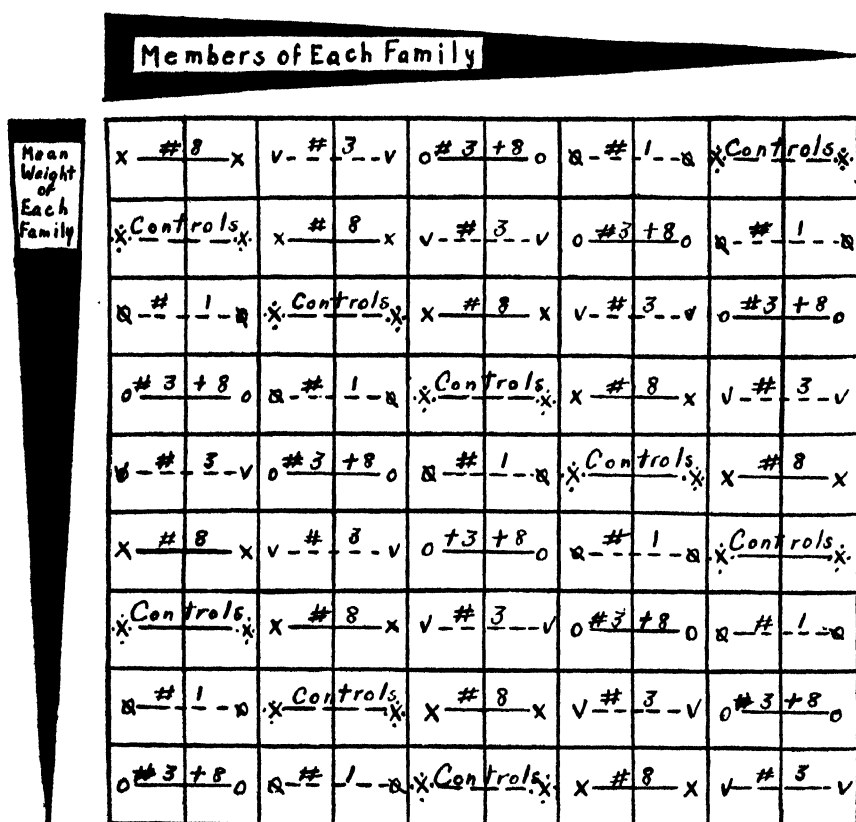 Members of Each Family
Mean
Weight
of
Each
Family
x # 8 x v # 3 v o # 3 + 8 o # 1 x Controls x
x Controls x x # 8 x v # 3 v o #3 + 8 o # 1
# 1 x Controls x x # 8 x v # 3 v o #3 + 8 o
o # 3 + 8 o # 1 x Controls x x # 8 x v # 3 v
v # 3 v o #3 + 8 o # 1 x Controls x x # 8 x
x # 8 x v # 3 v o +3 + 8 o # 1 x Controls x
x Controls x x # 8 x v # 3 v o #3 + 8 o # 1
# 1 x Controls x x # 8 x v # 3 v o # 3 + 8 o
o # 3 + 8 o # 1 x Controls x x # 8 x v # 3 v